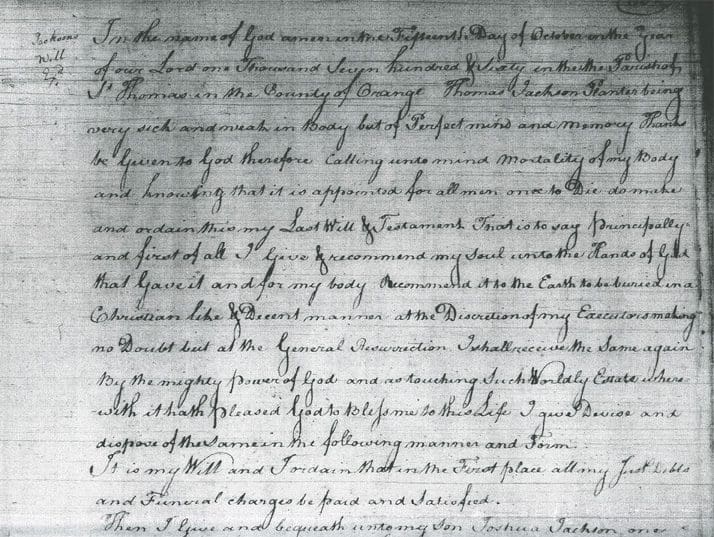 Jacksons
Will
In the name of God amen in the Fifteenth Day of October in the Year
of our Lord one Thousand Seven hundred & Sixty in the the Parish of
St Thomas in the County of Orange Thomas Jackson Planter being
very sick and weak in Body but of Perfect mind and memory Thanks
be Given to God therefore Calling unto mind Mortality of my Body
and knowing that it is appointed for all men once to Die do make
and ordain this my Last Will & Testament That is to say Principally
and first of all I Give & recommend my Soul unto the Hands of God
that Gave it and for my body Recommend it to the Earth to be buried in a
Christian like & Decent manner at the Discretion of my Executors making
no Doubt but at the General Resurrection I shall receive the Same again
By the mighty power of God and as touching Such Worldly Estate where-
-with it hath pleased God to Bless me to this Life I give Devise and
dispose of the same in the following manner and Form.
It is my Will and I ordain that in the First place all my Just Debts
and Funeral charges be paid and Satisfied.
Then I Give and bequeath unto my Son Joshua Jackson one